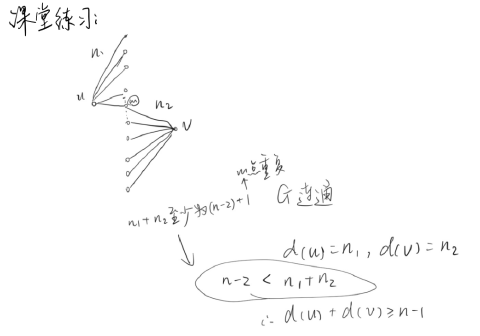 课堂练习:
n₁
u
m
n₂
v
m点重复
n₁+n₂至少为(n-2)+1
G连通
d(u)=n₁, d(v)=n₂
n-2 < n₁+n₂
∴ d(u)+d(v)≥n-1